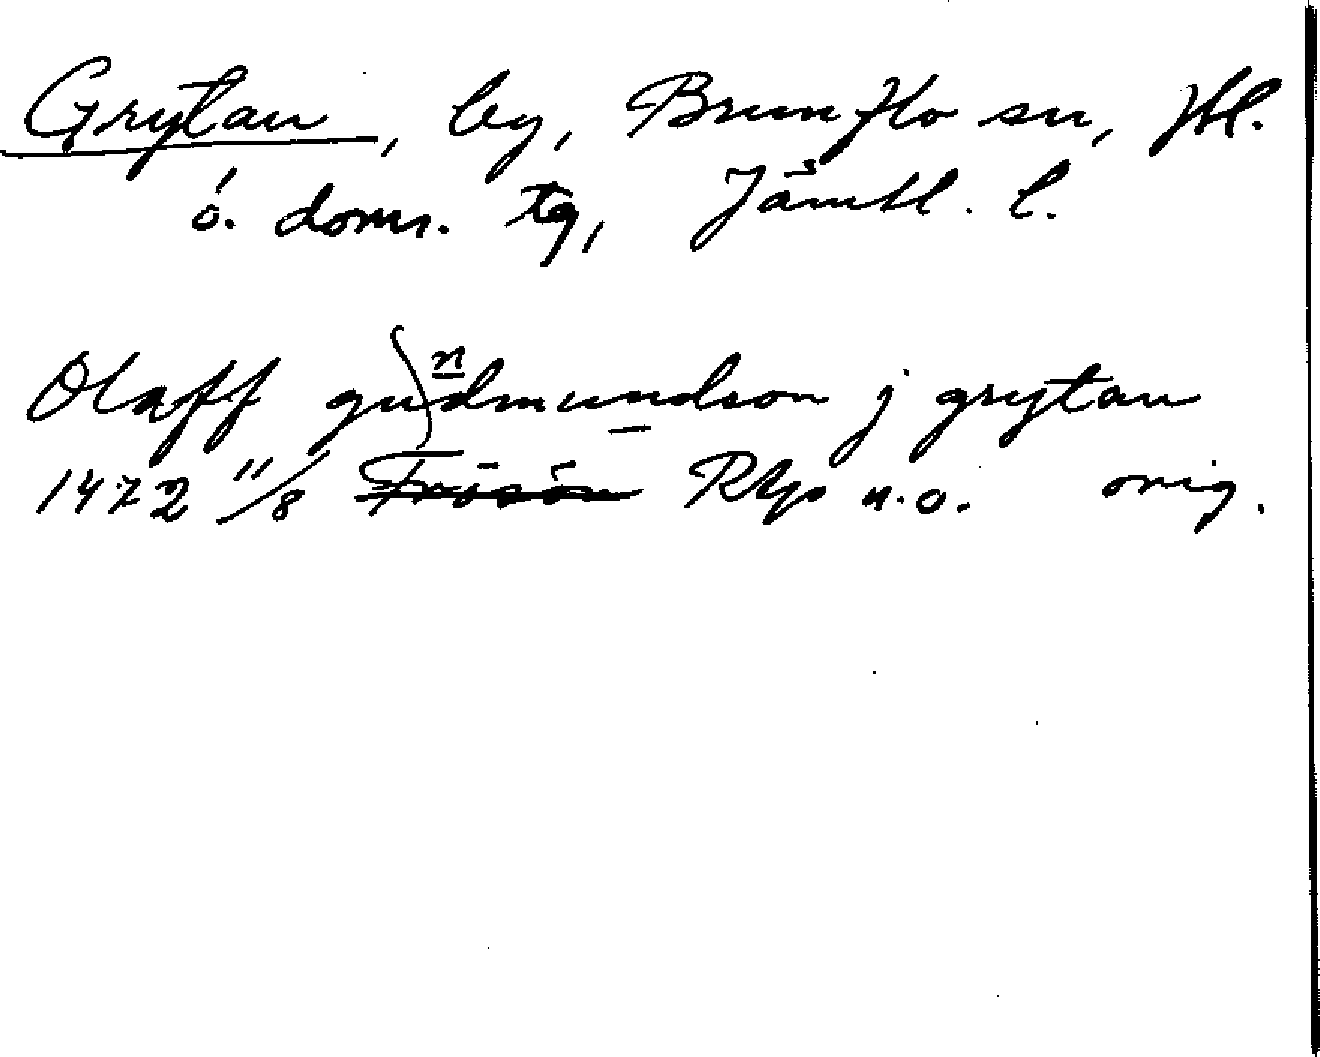 Grytan, by, Brunflo sn, Jtl.
ö. doms. tg, Jämtl. l.
Olaff gudmundson j grytan
1472 11/8 Frösön RAp n.o. orig.